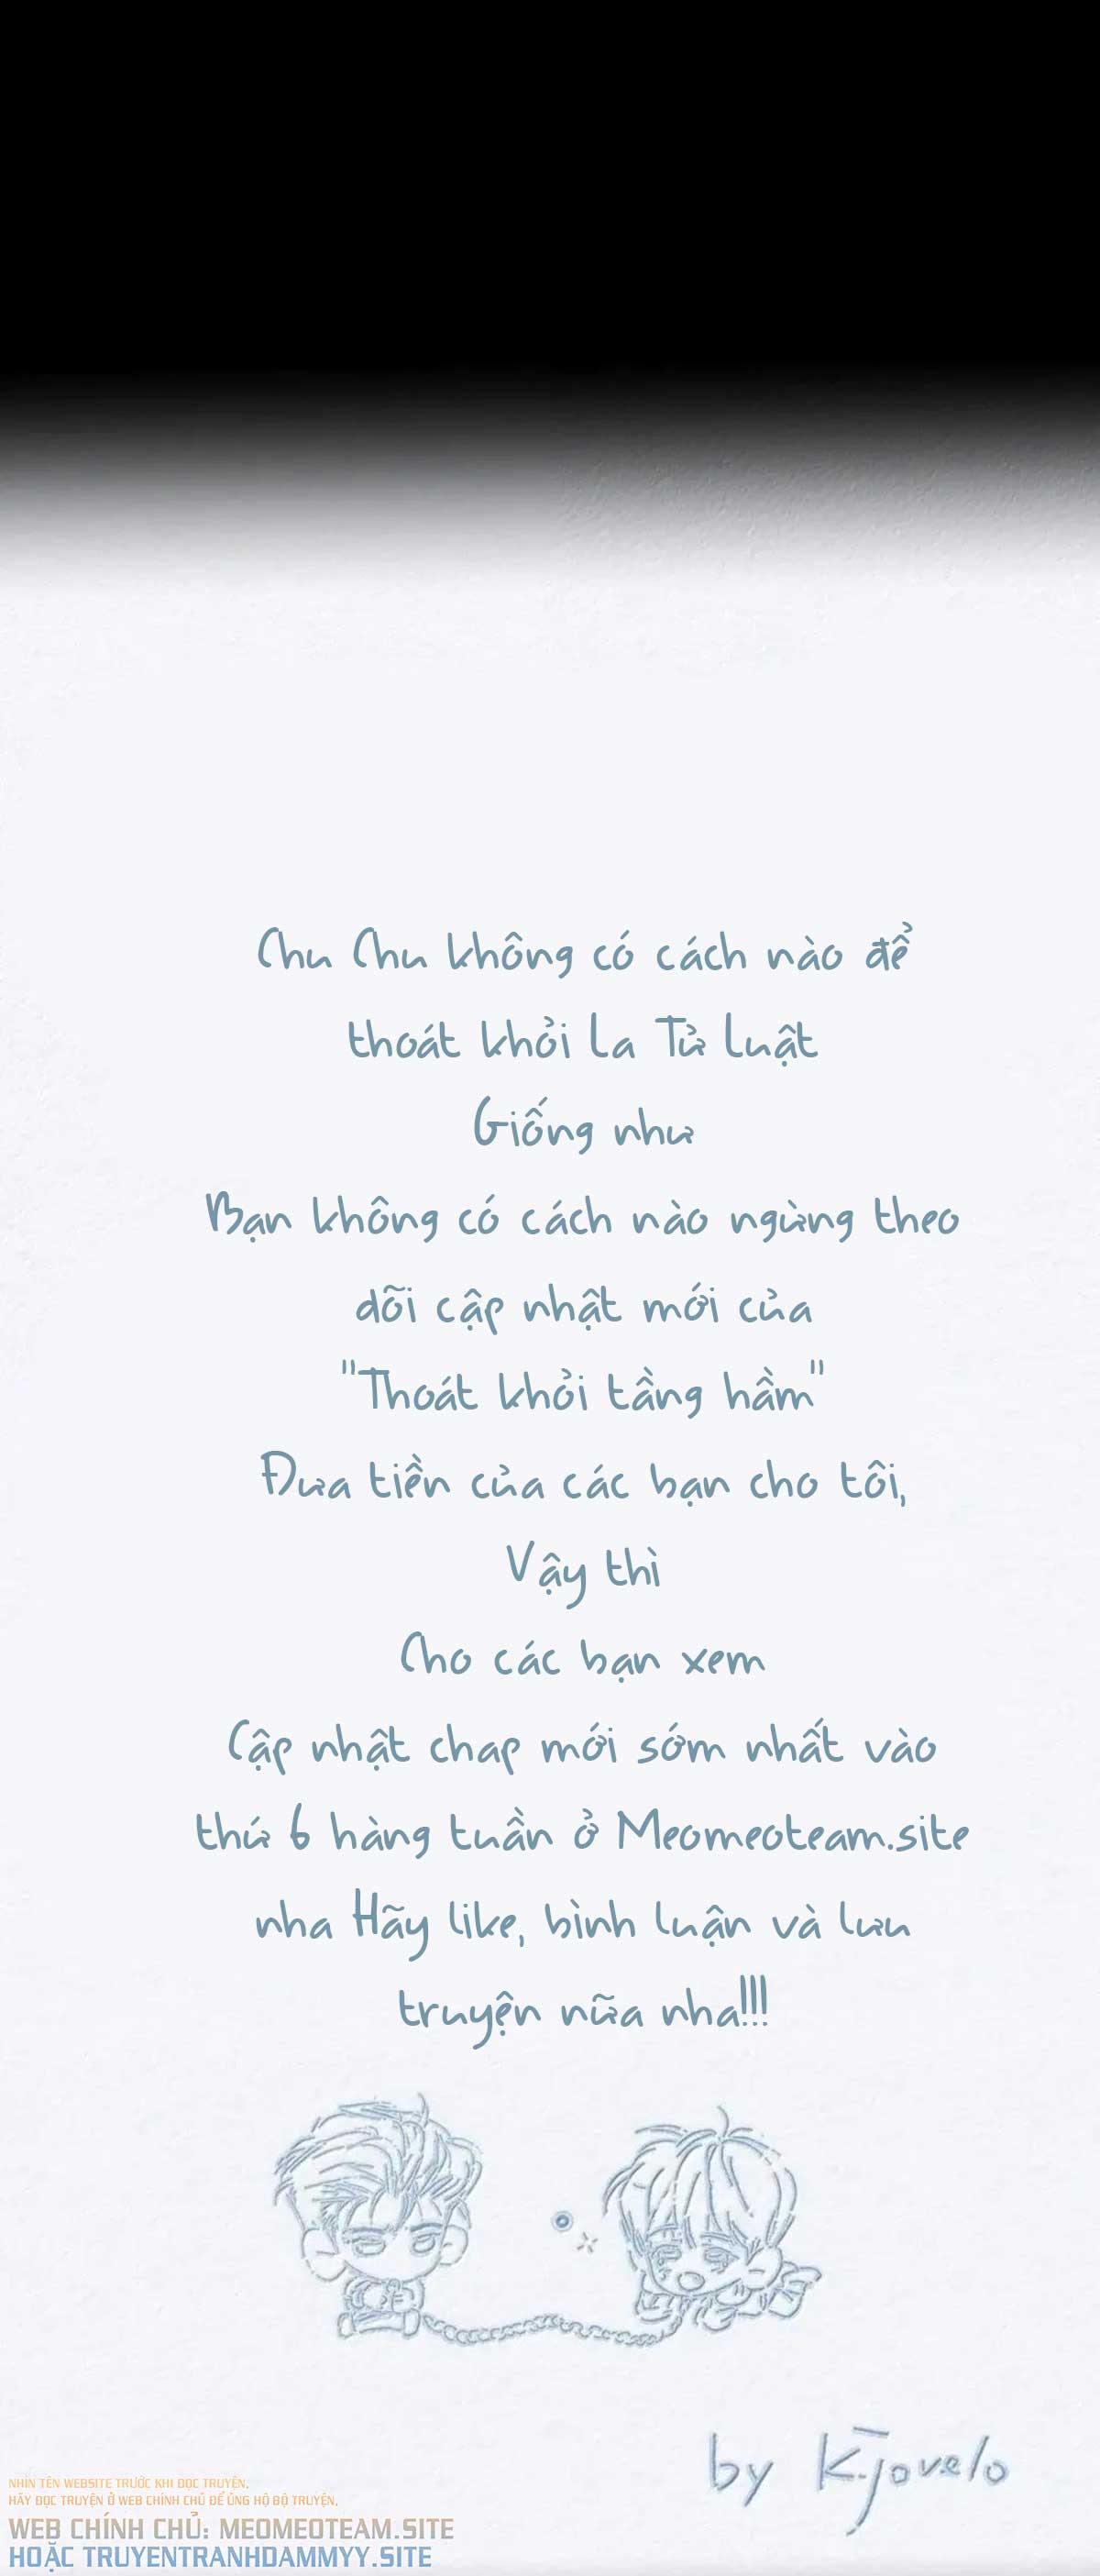 Chu Chu không có cách nào để
thoát khỏi La Tử Luật
Giống như
Bạn không có cách nào ngừng theo
dõi cập nhật mới của
"Thoát khỏi tầng hầm"
Đưa tiền của các bạn cho tôi,
Vậy thì
Cho các bạn xem
Cập nhật chap mới sớm nhất vào
thứ 6 hàng tuần ở Meomeoteam.site
nha Hãy like, bình luận và lưu
truyện nữa nha!!!
by K-jovelo
NHÌN TÊN WEBSITE TRƯỚC KHI ĐỌC TRUYỆN,
HÃY ĐỌC TRUYỆN Ở WEB CHÍNH CHỦ ĐỂ ỦNG HỘ BỘ TRUYỆN,
WEB CHÍNH CHỦ: MEOMEOTEAM.SITE
HOẶC TRUYENTRANHDAMMYY.SITE